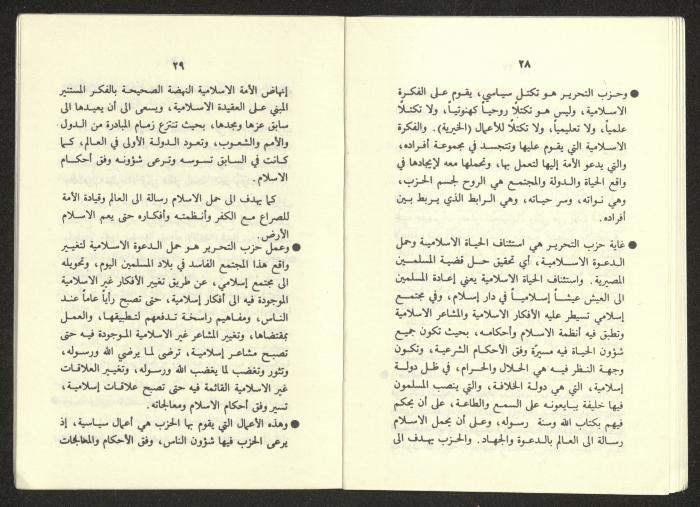 ٢٨
● وحزب التحرير هو تكتل سياسي، يقوم على الفكرة
الاسلامية، وليس هو تكتلاً روحياً كهنوتياً، ولا تكتلاً
علمياً، ولا تعليمياً، ولا تكتلاً للأعمال (الخيرية). والفكرة
الاسلامية التي يقوم عليها وتتجسد في مجموعة أفراده،
والتي يدعو الأمة إليها لتعمل بها، وتحملها معه لإيجادها في
واقع الحياة والدولة والمجتمع هي الروح لجسم الحزب،
وهي نواته، وسر حياته، وهي الرابط الذي يربط بين
أفراده.
● غاية حزب التحرير هي استئناف الحياة الاسلامية وحمل
الدعوة الاسلامية، أي تحقيق حل قضية المسلمين
المصيرية. واستئناف الحياة الاسلامية يعني إعادة المسلمين
الى العيش عيشاً إسلامياً في دار إسلام، وفي مجتمع
إسلامي تسيطر عليه الأفكار الاسلامية والمشاعر الاسلامية
وتطبق فيه أنظمة الاسلام وأحكامه، بحيث تكون جميع
شؤون الحياة فيه مسيرّة وفق الأحكام الشرعية، وتكون
وجهة النظر فيه هي الحلال والحرام، في ظل دولة
إسلامية، التي هي دولة الخلافة، والتي ينصب المسلمون
فيها خليفة يبايعونه على السمع والطاعة، على أن يحكم
فيهم بكتاب الله وسنة رسوله، وعلى أن يحمل الاسلام
رسالة الى العالم بالدعوة والجهاد. والحزب يهدف الى
٢٩
إنهاض الأمة الاسلامية النهضة الصحيحة بالفكر المستنير
المبني على العقيدة الاسلامية، ويسعى الى أن يعيدها الى
سابق عزها ومجدها، بحيث تنتزع زمام المبادرة من الدول
والأمم والشعوب، وتعود الدولة الأولى في العالم، كما
كانت في السابق تسوسه وترعى شؤونه وفق أحكام
الاسلام.
كما يهدف الى حمل الاسلام رسالة الى العالم وقيادة الأمة
للصراع مع الكفر وأنظمته وأفكاره حتى يعم الاسلام
الأرض.
● وعمل حزب التحرير هو حمل الدعوة الاسلامية لتغيير
واقع هذا المجتمع الفاسد في بلاد المسلمين اليوم، وتحويله
الى مجتمع إسلامي، عن طريق تغيير الأفكار غير الاسلامية
الموجودة فيه الى أفكار إسلامية، حتى تصبح رأياً عاماً عند
الناس، ومفاهيم راسخة تدفعهم لتطبيقها، والعمل
بمقتضاها، وتغيير المشاعر غير الاسلامية الموجودة فيه حتى
تصبح مشاعر إسلامية، ترضى لما يرضي الله ورسوله،
وتثور وتغضب لما يغضب الله ورسوله، وتغيير العلاقات
غير الاسلامية القائمة فيه حتى تصبح علاقات إسلامية،
تسير وفق أحكام الاسلام ومعالجاته.
● وهذه الأعمال التي يقوم بها الحزب هي أعمال سياسية، إذ
يرعى الحزب فيها شؤون الناس، وفق الأحكام والمعالجات